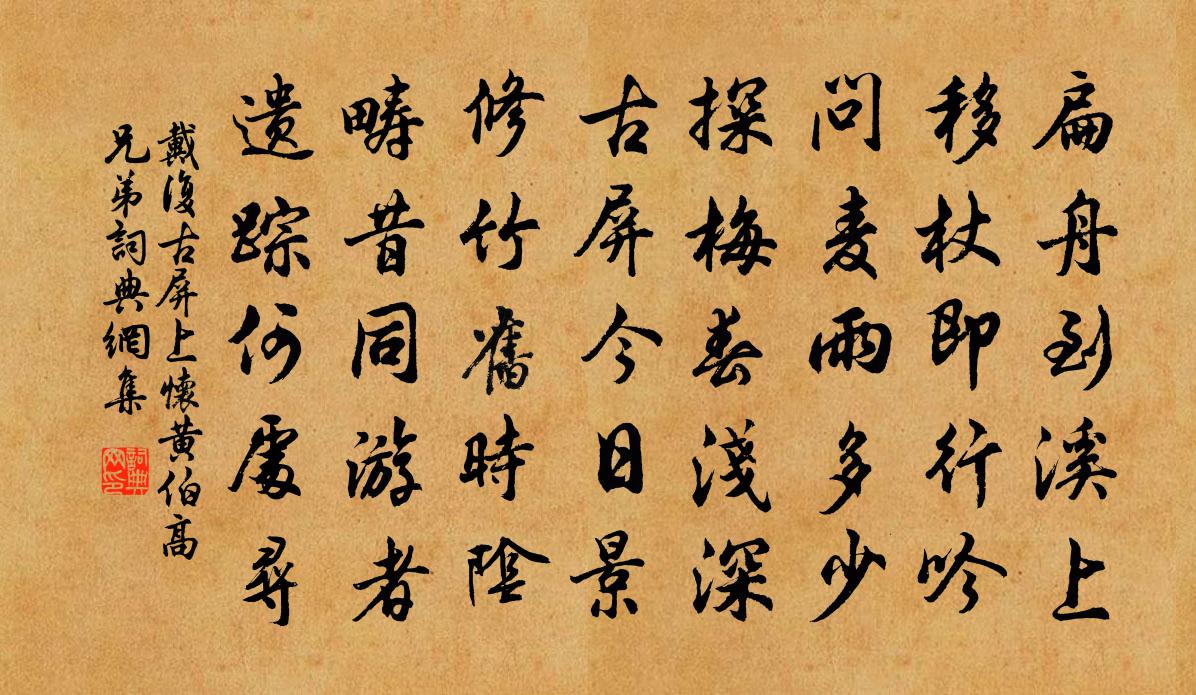 扁舟到溪上
移杖即行吟
問麦雨多少
探梅春淺深
古屏今日景
修竹舊時陰
疇昔同游者
遗踪何處尋
戴復古屏上懷黄伯高
兄弟詞典網集
詞典网印